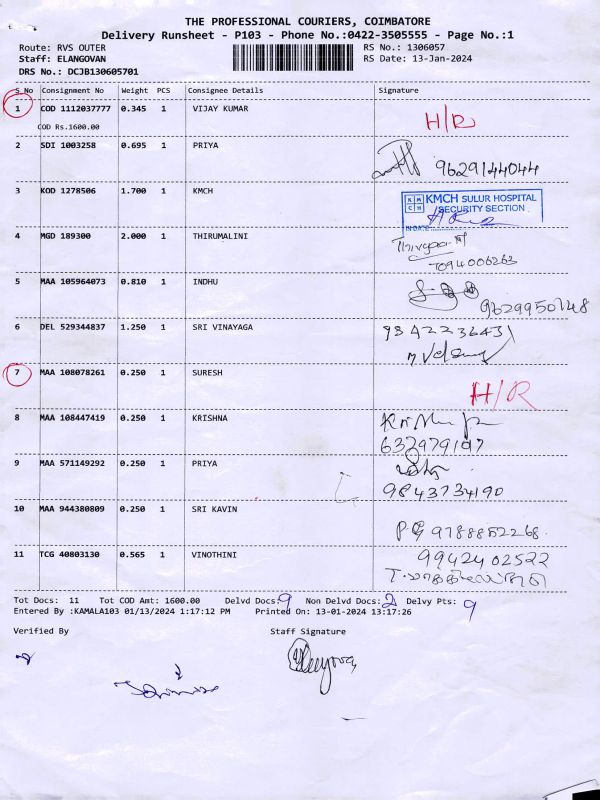 THE PROFESSIONAL COURIERS, COIMBATORE
Delivery Runsheet - P103 - Phone No.:0422-3505555 - Page No.:1
Route: RVS OUTER RS No.: 1306057
Staff: ELANGOVAN RS Date: 13-Jan-2024
DRS No.: DCJB130605701
S No Consignment No Weight PCS Consignee Details Signature
1 COD 1112037777 0.345 1 VIJAY KUMAR H/R
COD Rs.1600.00
2 SDI 1003258 0.695 1 PRIYA 9629144044
3 KOD 1278506 1.700 1 KMCH KMCH SULUR HOSPITAL
SECURITY SECTION
4 MGD 189300 2.000 1 THIRUMALINI
7094006263
5 MAA 105964073 0.810 1 INDHU
9629950748
6 DEL 529344837 1.250 1 SRI VINAYAGA 9842236431
7 MAA 108078261 0.250 1 SURESH H/R
8 MAA 108447419 0.250 1 KRISHNA
9 MAA 571149292 0.250 1 PRIYA
9843734190
10 MAA 944380809 0.250 1 SRI KAVIN
9788852268
11 TCG 40803130 0.565 1 VINOTHINI 9942402522
Tot Docs: 11 Tot COD Amt: 1600.00 Delvd Docs: 9 Non Delvd Docs: 2 Delvy Pts: 9
Entered By :KAMALA103 01/13/2024 1:17:12 PM Printed On: 13-01-2024 13:17:26
Verified By Staff Signature